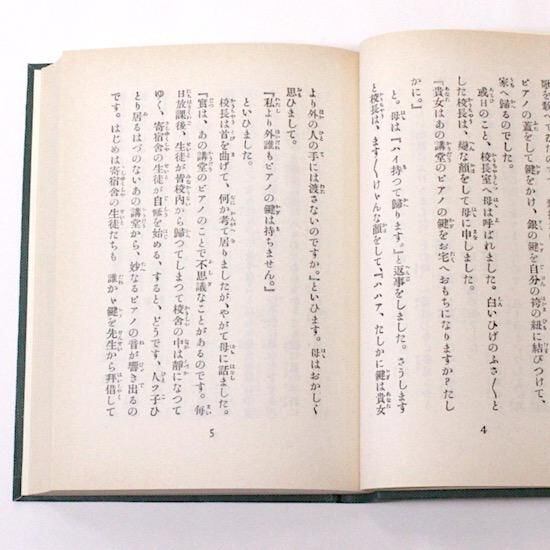 歌を載つて
ピアノの蓋をして鍵をかけ、銀の鍵を自分の袴の紐に結びつけて、
家へ歸るのでした。
或日のこと、校長室へ母は呼ばれました。白いひげのふさ〳〵と
した校長は、變な顏をして母に申しました。
『貴女はあの講堂のピアノの鍵をお宅へおもちになりますか？たし
かに。』
と。母は『ハイ持つて歸ります。』と返事をしました。さうします
と校長は、ます〳〵けゃんな顏をして、『ハハア、たしかに鍵は貴女
4
より外の人の手には渡さないのですか。』といひます。母はおかしく
思ひまして。
『私より外誰もピアノの鍵は持ちません。』
といひました。
校長は首を曲げて、何か考へて居りましたが、やがて母に話ました。
『實は、あの講堂のピアノのことで不思議なことがあるのです。毎
日放課後、生徒が皆校内から歸つてしまつて校舎の中は靜になつて
ゆく、寄宿舎の生徒が自修を始める、すると、どうです、人ッ子ひ
とり居るはづのないあの講堂から、妙なるピアノの音が響き出るの
です。はじめは寄宿舎の生徒たちも　誰かゞ鍵を先生から拜借して
5